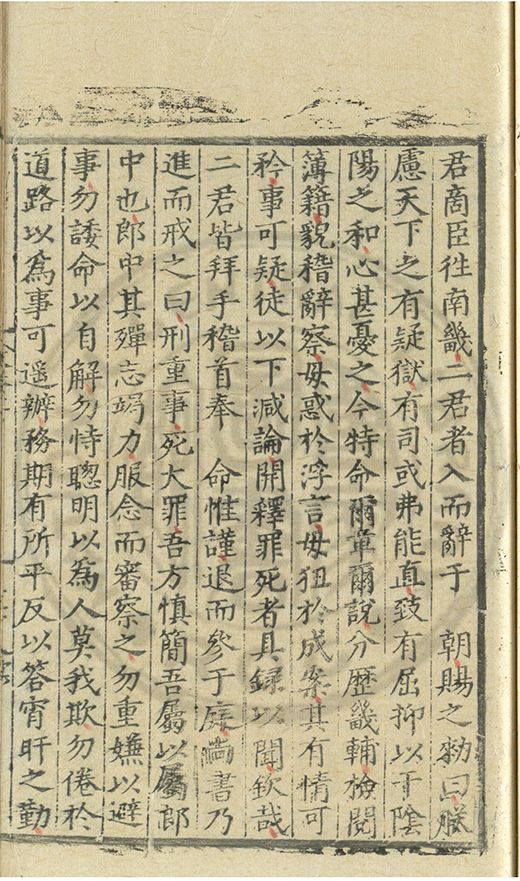 君商臣往南畿二君者入而辭于　朝賜之勑曰朕
慮天下之有疑獄有司或弗能直致有屈抑以干陰
陽之和心甚憂之今特命爾章爾說分歷畿輔檢閱
簿籍貌稽辭察毋惑於浮言毋狃於成案其有情可
矜事可疑徒以下減論開釋罪死者具録以聞欽哉
二君皆拜手稽首奉　命惟謹退而參于庭尚書乃
進而戒之曰刑重事死大罪吾方慎簡吾屬以屬郎
中也郎中其殫志竭力服念而審察之勿重嫌以避
事勿諉命以自解勿恃聰明以爲人莫我欺勿倦於
道路以爲事可遥辦務期有所平反以答宵旰之勤